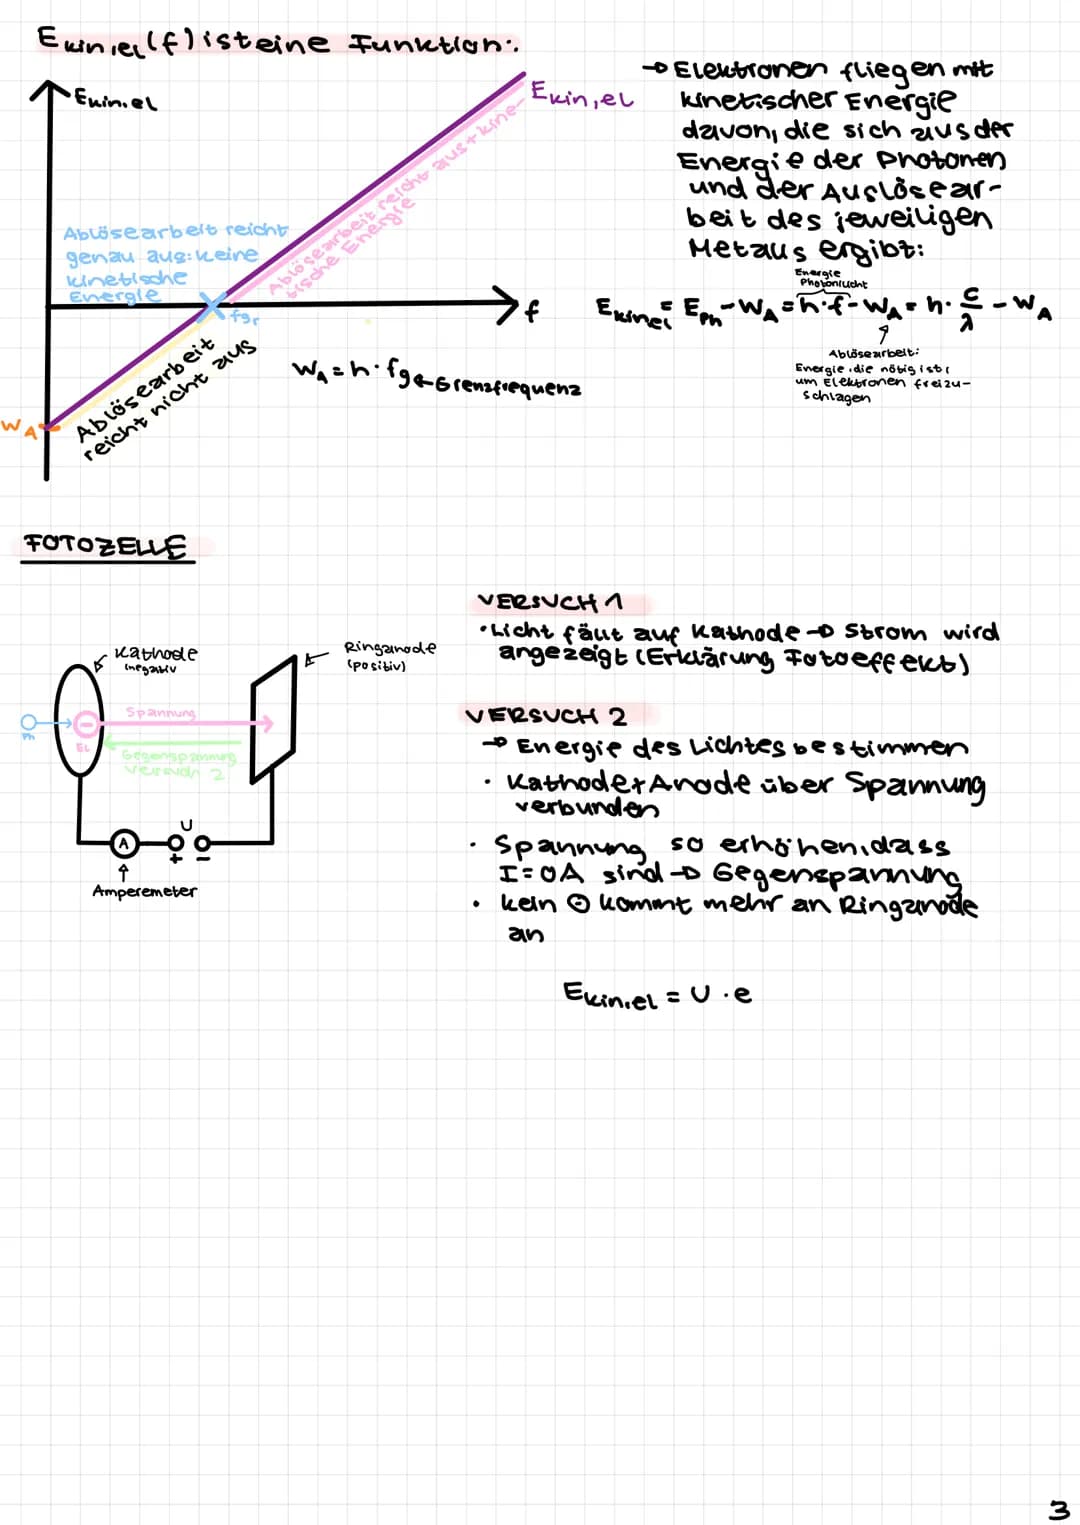 Ekin,el(f) ist eine Funktion:
Ekin,el
Ekin,el
Ablösearbeit reicht aus + kine-
tische Energie
Ablösearbeit reicht
genau aus: keine
kinetische
Energie
fgr
f
WA
Ablösearbeit
reicht nicht aus
WA = h · fg ← Grenzfrequenz
→ Elektronen fliegen mit
kinetischer Energie
davon, die sich aus der
Energie der Photonen
und der Auslösear-
beit des jeweiligen
Metalls ergibt:
Energie
Photonlicht
Ekin,el = EPh - WA = h · f - WA = h · c/λ - WA
Ablösearbeit:
Energie, die nötig ist,
um Elektronen freizu-
schlagen
FOTOZELLE
Kathode
(negativ
Ringanode
(positiv)
Ph
EL
Spannung
Gegenspannung
Versuch 2
U
A
+ -
Amperemeter
VERSUCH 1
• Licht fällt auf Kathode → Strom wird
angezeigt (Erklärung Fotoeffekt)
VERSUCH 2
→ Energie des Lichtes bestimmen
• Kathode + Anode über Spannung
verbunden
• Spannung so erhöhen, dass
I = 0A sind → Gegenspannung
• kein ⊖ kommt mehr an Ringanode
an
Ekin,el = U · e
3